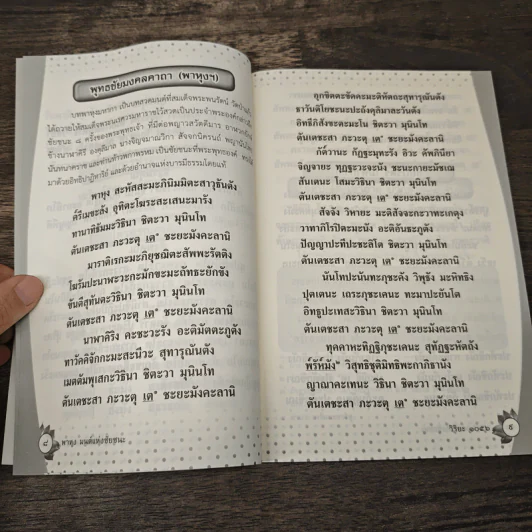 พุทธชัยมงคลคาถา (พาหุงฯ)
บทพาหุงมหากา เป็นบทสวดมนต์ที่สมเด็จพระพนรัตน์ วัดป่าแก้ว
ได้ถวายให้สมเด็จพระนเรศวรมหาราชไว้สวดเป็นประจำพระองค์
ชัยชนะ ๘ ครั้งของพระพุทธเจ้า ที่มีต่อพญาวสวัตดีมาร อาฬวกยักษ์
ช้างนาฬาคีรี องคุลิมาล นางจิญจมาณวิกา สัจจกนิครนถ์ พญา
นันโทปนันทนาคราช และท่านท้าวพกาพรหม เป็นชัยชนะที่พระพุทธองค์
มาด้วยอิทธิปาฏิหาริย์ และด้วยอำนาจแห่งบารมีธรรมโดยแท้
พาหุง สะหัสสะมะภินิมมิตะสาวุธันตัง
ครีเมขะลัง อุทิตะโฆระสะเสนะมารัง
ทานาทิธัมมะวิธินา ชิตะวา มุนินโท
ตันเตชะสา ภะวะตุ เต* ชะยะมังคะลานิ
มาราติเรกะมะภิยุชฌิตะสัพพะรัตติง
โฆรัมปะนาฬะวะกะมักขะมะถัทธะยักขัง
ขันตีสุทันตะวิธินา ชิตะวา มุนินโท
ตันเตชะสา ภะวะตุ เต* ชะยะมังคะลานิ
นาฬาคิริง คะชะวะรัง อะติมัตตะภูตัง
ทาวัคคิจักกะมะสะนีวะ สุทารุณันตัง
เมตตัมพุเสกะวิธินา ชิตะวา มุนินโท
ตันเตชะสา ภะวะตุ เต* ชะยะมังคะลานิ
๘ พาหุง มนต์แห่งชัยชนะ
อุกขิตตะขัคคะมะติหัตถะสุทารุณันตัง
ธาวันติโยชะนะปะถังคุลิมาละวันตัง
อิทธีภิสังขะตะมะโน ชิตะวา มุนินโท
ตันเตชะสา ภะวะตุ เต* ชะยะมังคะลานิ
กัตวานะ กัฏฐะมุทะรัง อิวะ คัพภินียา
จิญจายะ ทุฏฐะวะจะนัง ชะนะกายะมัชเฌ
สันเตนะ โสมะวิธินา ชิตะวา มุนินโท
ตันเตชะสา ภะวะตุ เต* ชะยะมังคะลานิ
สัจจัง วิหายะ มะติสัจจะกะวาทะเกตุง
วาทาภิโรปิตะมะนัง อะติอันธะภูตัง
ปัญญาปะทีปะชะลิโต ชิตะวา มุนินโท
ตันเตชะสา ภะวะตุ เต* ชะยะมังคะลานิ
นันโทปะนันทะภุชะคัง วิพุธัง มะหิทธิง
ปุตเตนะ เถระภุชะเคนะ ทะมาปะยันโต
อิทธูปะเทสะวิธินา ชิตะวา มุนินโท
ตันเตชะสา ภะวะตุ เต* ชะยะมังคะลานิ
ทุคคาหะทิฏฐิภุชะเคนะ สุทัฏฐะหัตถัง
พ๎รัห๎มัง* วิสุทธิชุติมิทธิพะกาภิธานัง
ญาณาคะเทนะ วิธินา ชิตะวา มุนินโท
ตันเตชะสา ภะวะตุ เต* ชะยะมังคะลานิ
วิริยะ ๑๐๕๖ ๙